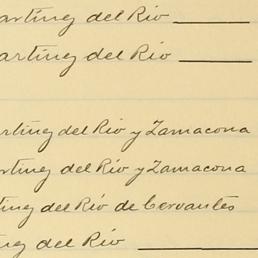 artinz del Rio
artinz del Rio
artinz del Rio y Zamacona
artinz del Rio y Zamacona
tinz del Rió de Cervantes
nz del Rio